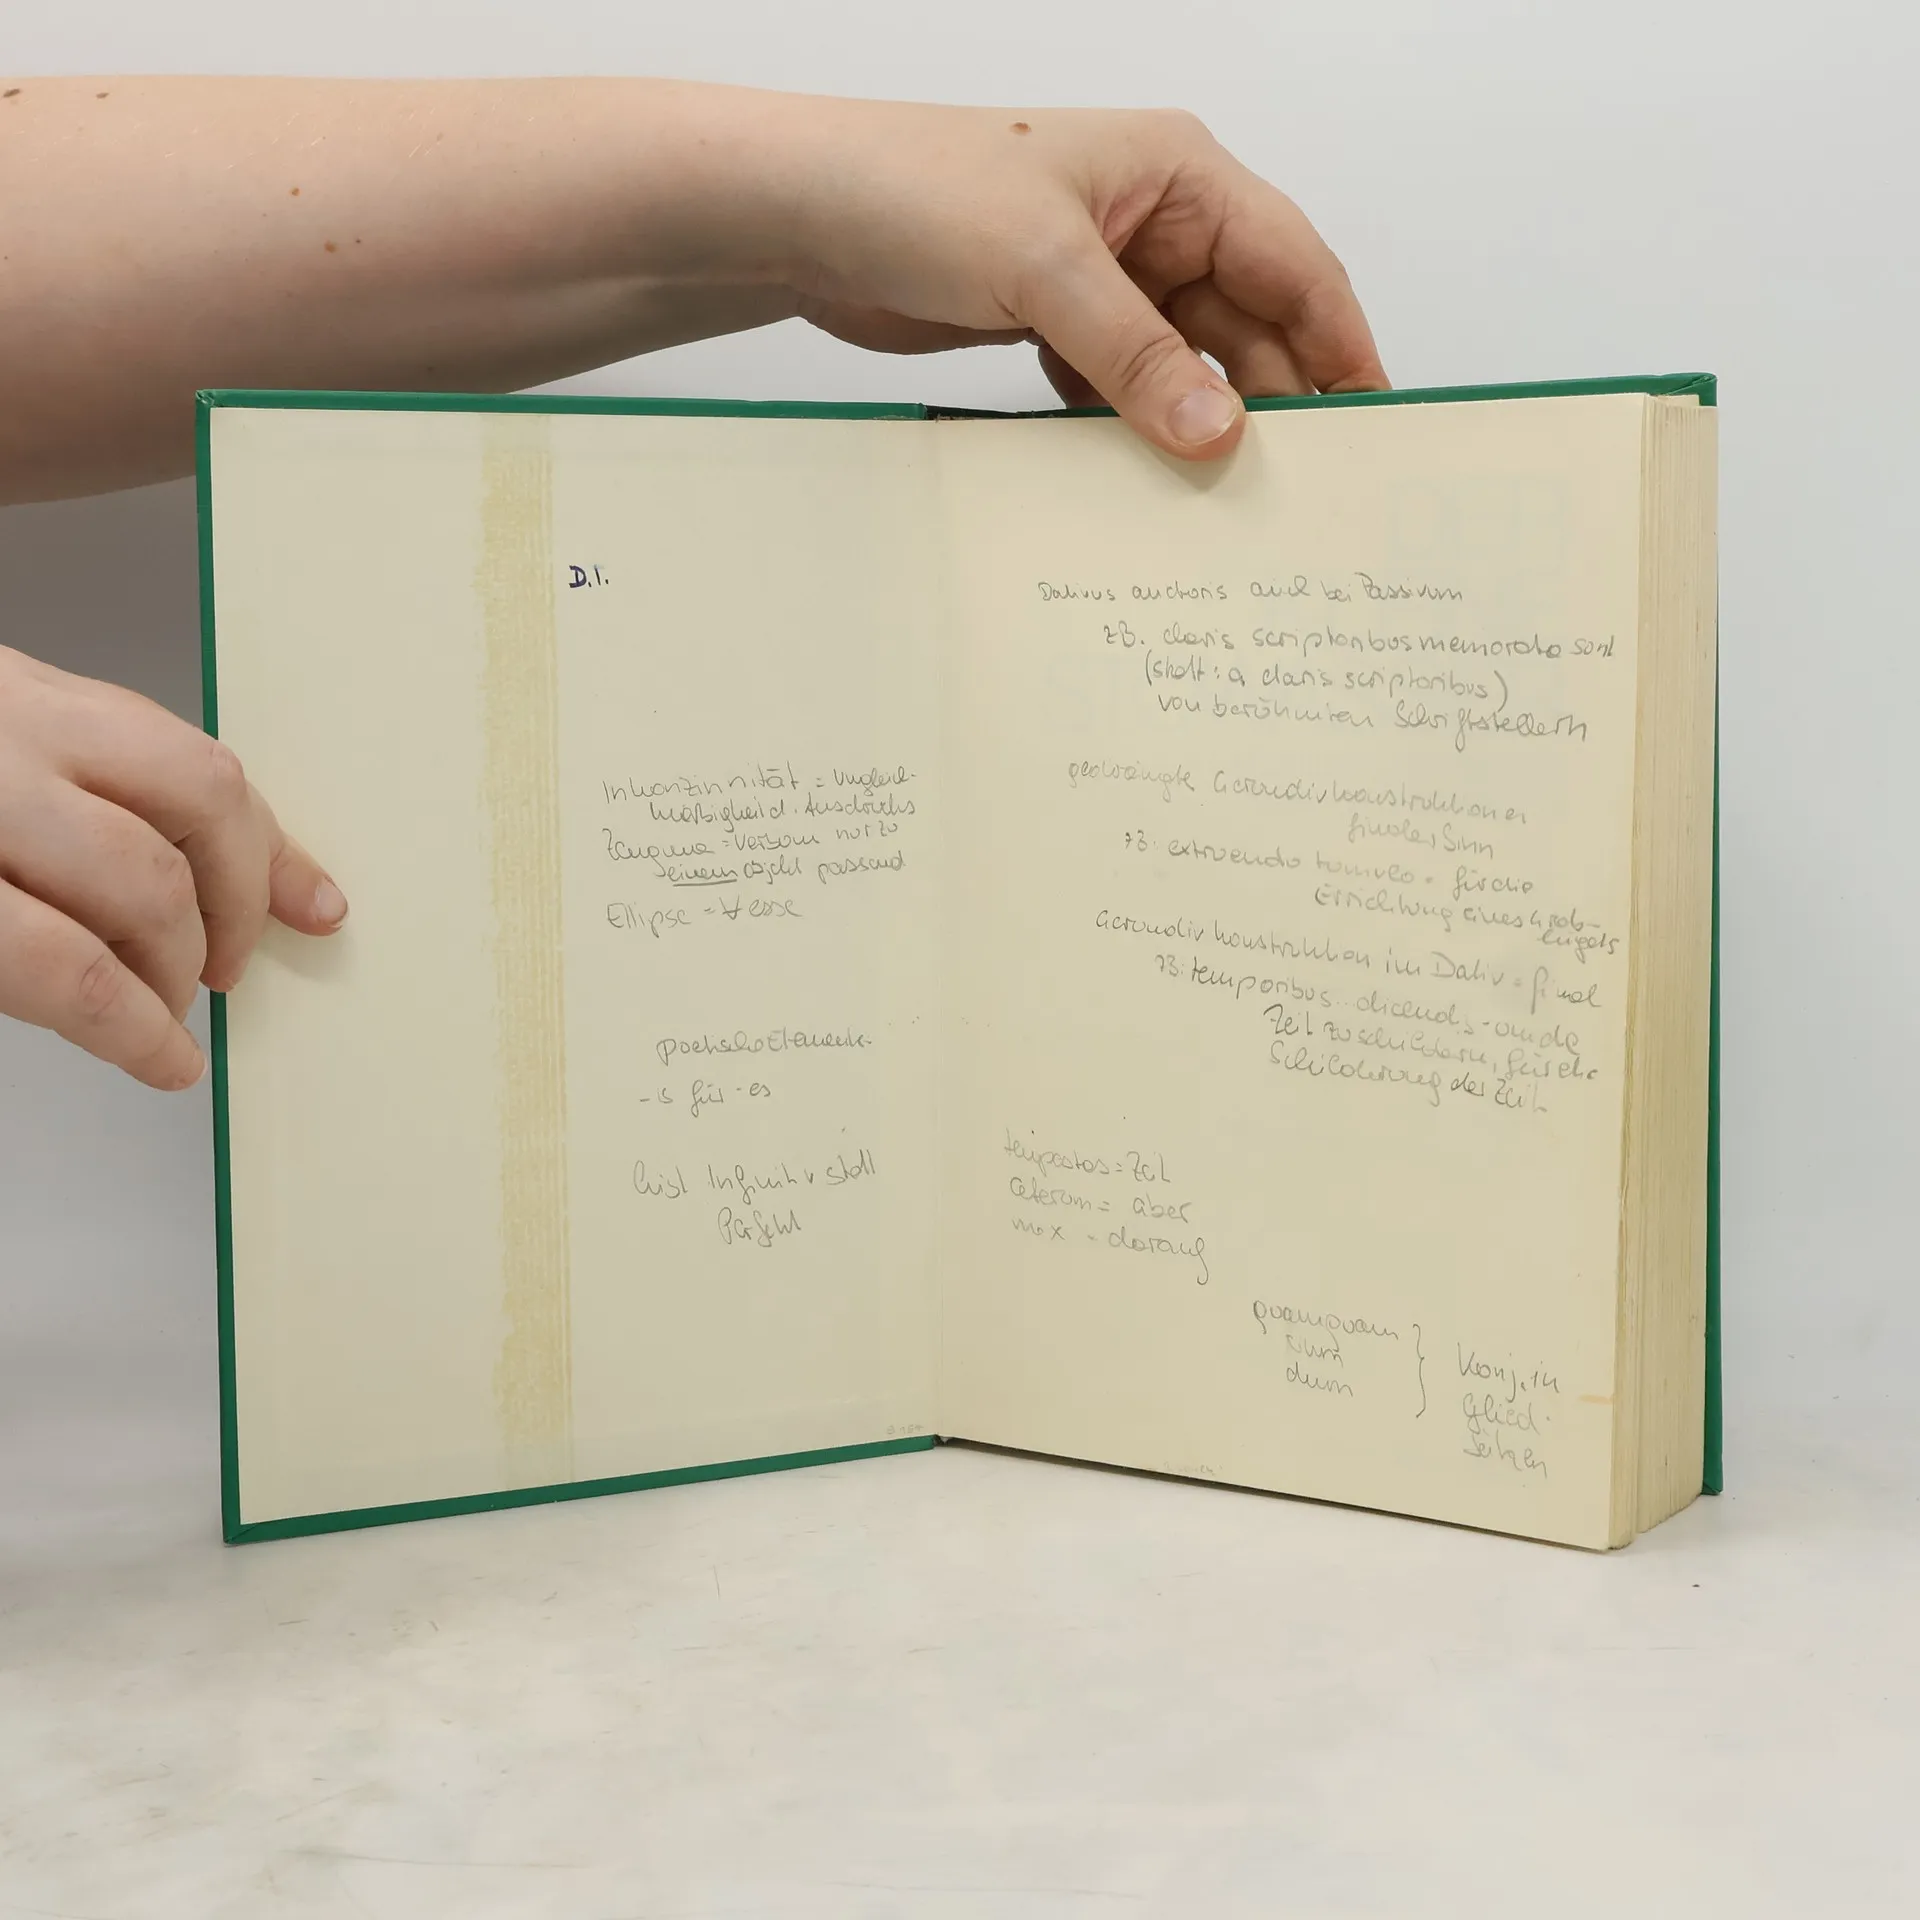 D.I.
Inkonzinnität = Ungleich-
mäßigkeit d. Ausdrucks
Zeugma = Verbum nur zu
einem Objekt passend
Ellipse = v esse
poetische Elemente
-is für -es
hist Infinitiv statt
Perfekt
Dativus auctoris auch bei Passivum
zB. claris scriptoribus memorata sunt
(statt: a claris scriptoribus)
von berühmten Schriftstellern
gedrängte Gerundivkonstruktionen
finaler Sinn
zB: extruendo tumulo = für die
Errichtung eines Grab-
hügels
Gerundivkonstruktion im Dativ = final
zB: temporibus .. dicendis - um die
Zeit zu schildern, für die
Schilderung der Zeit
tempestas = Zeit
ceterum = aber
mox = darauf
quamquam
cum
dum
Konj. in
Glied-
sätzen